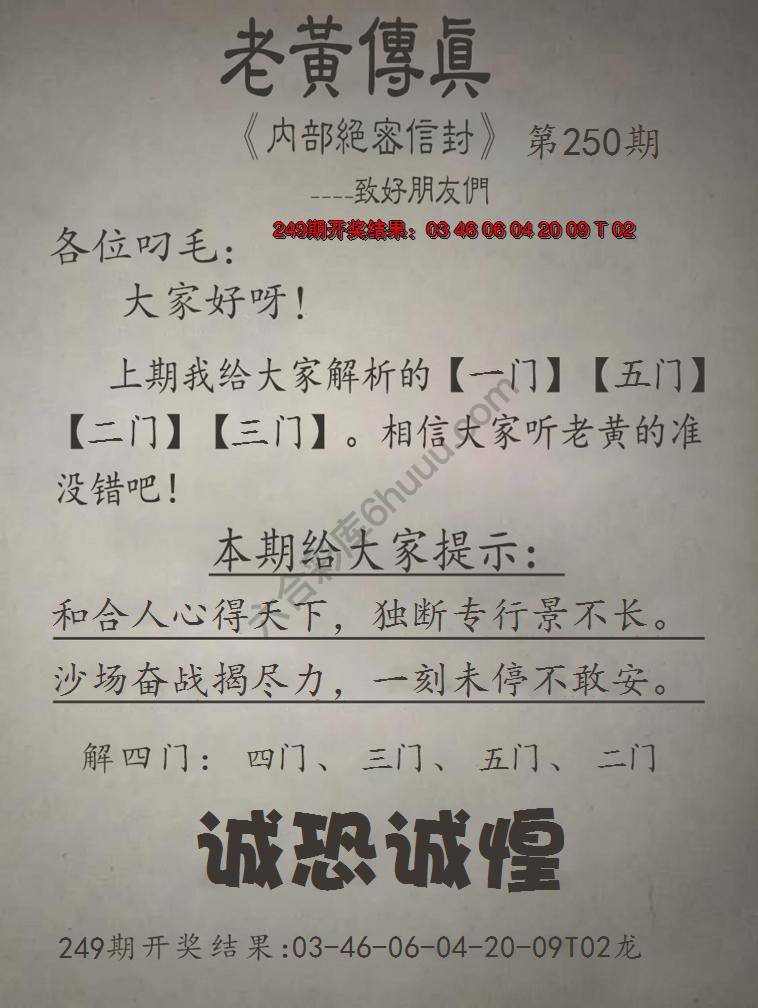 老黃傳真
《内部絕密信封》 第250期
----致好朋友們
249期开奖结果：03 46 06 04 20 09 T 02
各位叼毛：
大家好呀！
上期我给大家解析的【一门】【五门】
【二门】【三门】。相信大家听老黄的准
没错吧！
本期给大家提示：
和合人心得天下，独断专行景不长。
沙场奋战揭尽力，一刻未停不敢安。
解四门：四门、三门、五门、二门
诚恐诚煌
249期开奖结果:03-46-06-04-20-09T02龙
六合彩库6huuu.com